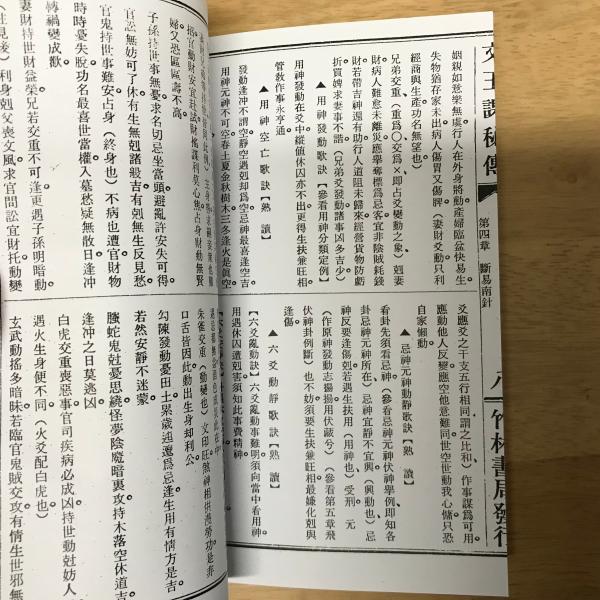 文王課秘傳
第四章 斷易南針
八
竹林書局發行
姻親如意樂無虞行人在外身將動產婦臨盆快易生
失物猶存家未出病人傷胃又傷脾（妻財爻動只利
經商與生產功名無望也）
兄弟交重、（重為〇交為×即占爻變動之象）剋妻
財病人難愈未離災應舉奪標為忌客官非陰賊耗錢
財若帶吉神還有助行人道阻未歸來經營貨物防虧
折買婢求妻事不諧（兄弟爻發動諸事凶多吉少）
▲用神發動歌訣【熟 讀】（參看用神分類定例）
用神發動在爻中縱値休囚亦不凶更得生扶兼旺相
管教作事永亨通
▲用神空亡歌訣【熟 讀】
發動逢沖不謂空靜空遇剋却為空忌神最喜逢空吉
用神元神不可空春土夏金秋樹木三冬逢火是眞空
爻應爻之干支五行相同謂之比和）作事謀為可用
應動他人反變應空他意難同世空世動我心慵只恐
自家懶動
▲忌神元神動靜歌訣【熟 讀】
看卦先須看忌神（參看忌神元神伏神舉例、即知各
卦忌神元神所在）忌神宜靜不宜興（興動也）忌
神反要逢傷剋若遇生扶用（用神也）受刑 元
（作原神發動志揚揚用伏藏兮）（參看第五章飛
伏神卦例斷）也不妨須要生扶兼旺相最嫌化剋與
逢傷
▲六爻動靜歌訣【熟 讀】
【六爻亂動訣】六爻亂動事難明須向當中看用神
用遇休囚遭剋害須知此事費精神
招官動財安宜赴試財搖謀利莫心焦占身財動無賢
婦又恐區區壽不高
子孫持世事無憂求名切忌坐當頭避亂許安失可得
官訟無妨可了休有生無剋諸般吉有剋無生反見愁
官鬼持世事難安占身（終身也）不病也遭官財物
時時憂失脫功名最喜世當權入墓愁疑無散日逢沖
轉禍變成歡
妻財持世財益榮兄若交重不可逢更遇子孫明暗動
利身剋父喪文風求官問訟宜財托動變
朱雀交重（動變也）文印旺煞神相併謾勞功是非
口舌皆因此動出生身却利公
勾陳發動憂田土累歲迍邅為忌逢生用有情方是吉
若然安靜不迷蒙
螣蛇鬼尅憂思繞怪夢陰魔暗裏攻持木落空休道吉
逢沖之日莫逃凶
白虎交重喪惡事官司疾病必成凶持世動尅妨人
遇火生身便不同（火爻配白虎也）
玄武動搖多暗昧若臨官鬼賊交攻有情生世邪無